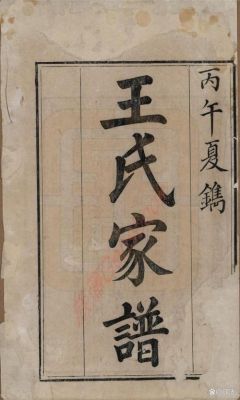 丙午夏鐫
王氏家譜